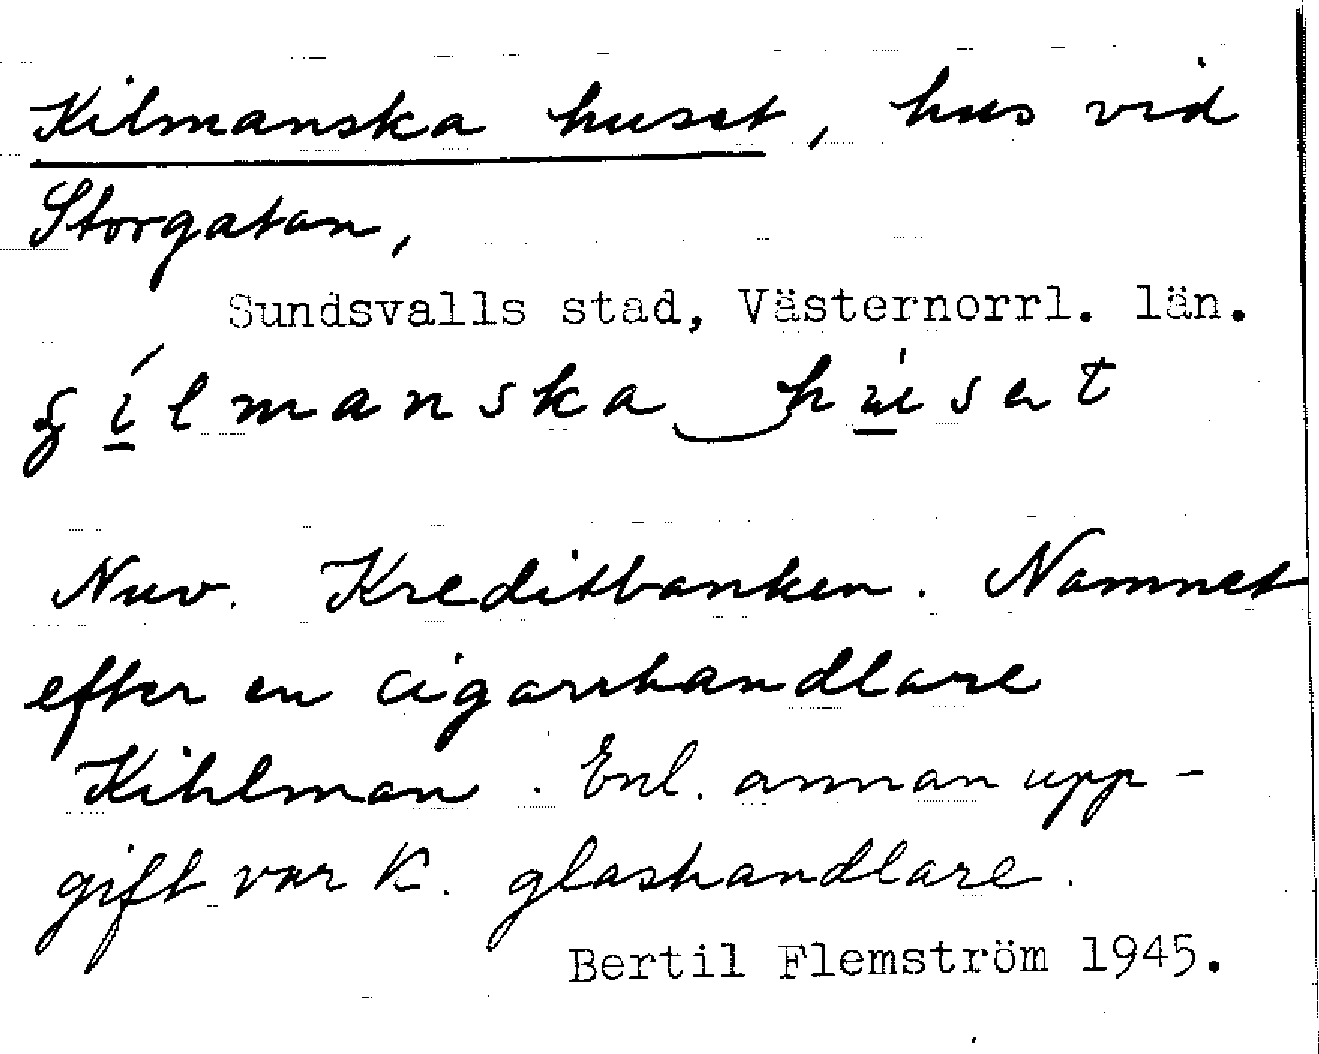 Kilmanska huset, hus vid
Storgatan,
Sundsvalls stad, Västernorrl. län.
huset
Nuv. Kreditbanken. Namnet
efter en cigarrhandlare
Kihlman. Enl. annan upp-
gift var K. glashandlare.
Bertil Flemström 1945.